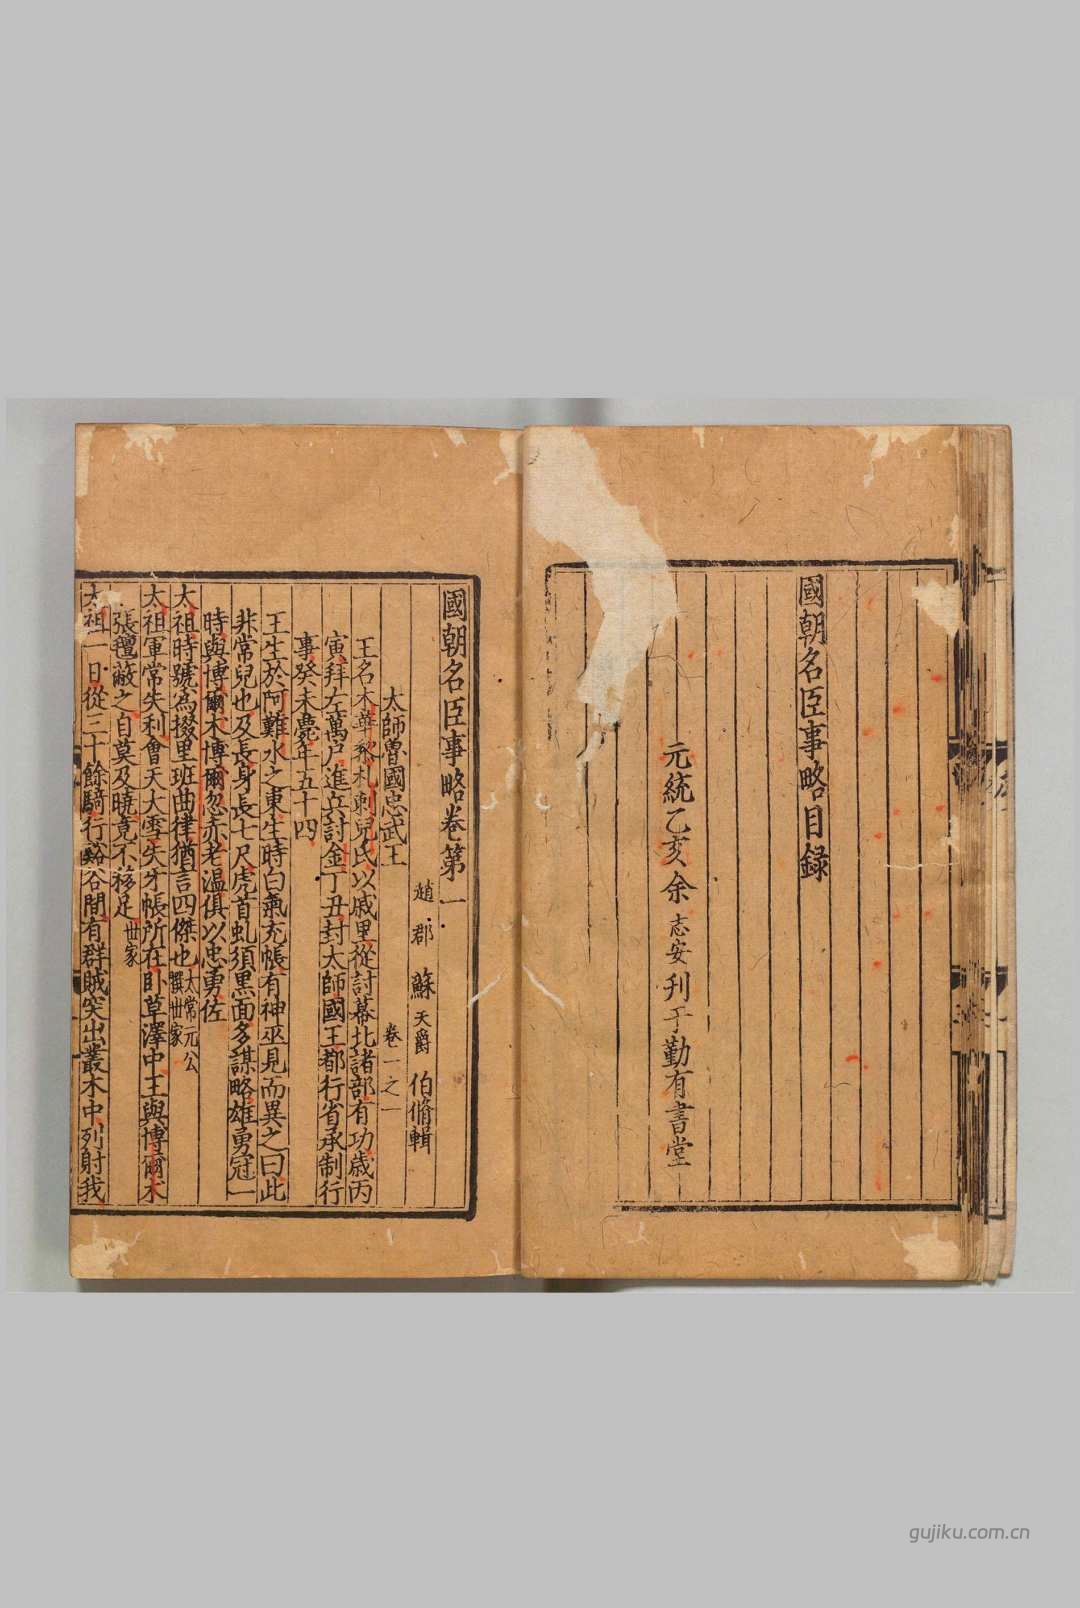 國朝名臣事略目録
元統乙亥余志安刊于勤有書堂
國朝名臣事略卷第一
趙郡蘇天爵伯脩輯
太師魯國忠武王 卷一之一
王名木華黎札剌兒氏以戚里從討幕北諸部有功歲丙
寅拜左萬户進兵討金丁丑封太師國王都行省承制行
事癸未薨年五十四
王生於阿難水之東生時白氣充帳有神巫見而異之曰此
非常兒也及長身長七尺虎首虬須黑面多謀略雄勇冠一
時與博爾木博爾忽赤老溫俱以忠勇佐
太祖時號為掇里班曲律猶言四傑也太常元公撰世家
太祖軍常失利會天大雪失牙帳所在卧草澤中王與博爾木
張氊蔽之自莫及曉竟不移足世家
太祖一日從三十餘騎行谿谷間有群賊突出叢木中列射我
gujiku.com.cn